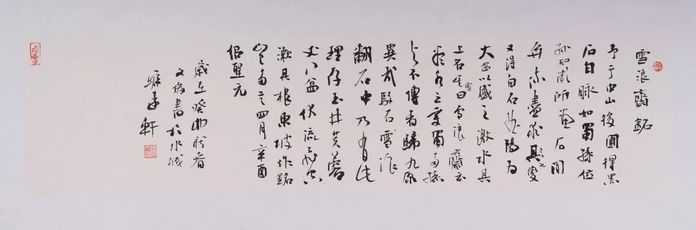 雪浪齋銘
予于中山後圃得黑
石白脉如蜀孫位
孫知微所畫石間
奔流盡水之變
又得白石曲陽為
大盆以盛之激水其
上名其室曰雪浪齋云
盡水之變蜀兩孫
與不傳者歸九原
異哉駁石雪浪
翻石中乃有此
理存玉井芙蓉
丈八盆伏流飛空
漱其根東坡作銘
豈多言四月辛酉
紹聖元
歲在癸卯秋
書於水城
軒